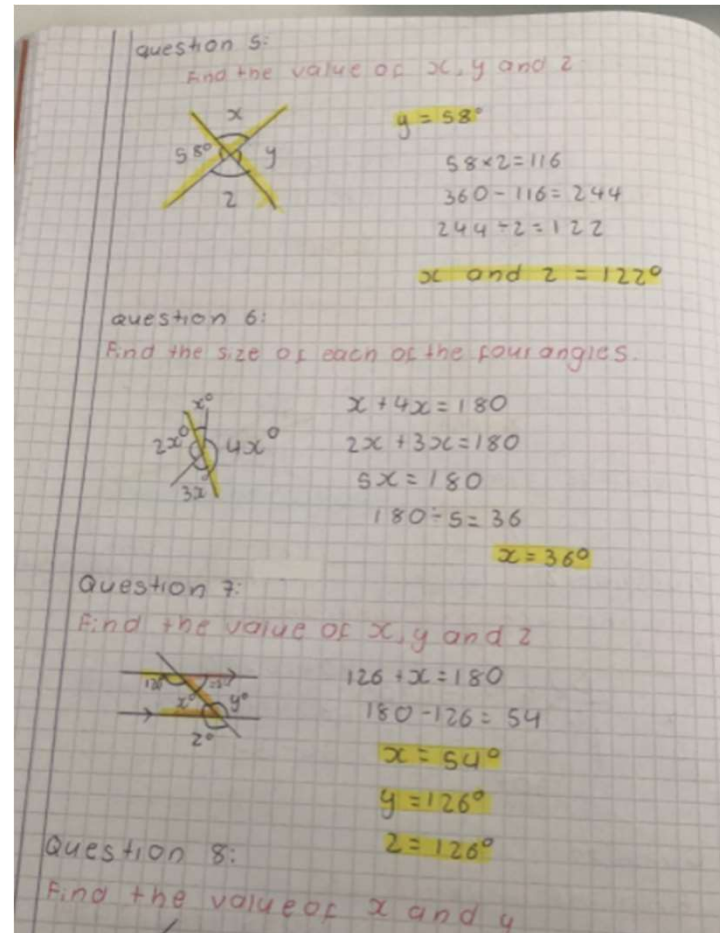 question 5:
Find the value of x, y and z
x
58°
y
z
y = 58°
58×2=116
360-116=244
244÷2=122
x and z = 122°
question 6:
Find the size of each of the four angles.
x°
2x°
4x°
3x°
x+4x=180
2x+3x=180
5x=180
180÷5=36
x=36°
Question 7:
Find the value of x, y and z
x°
y°
z°
126+x=180
180-126=54
x=54°
y=126°
z=126°
Question 8:
Find the value of x and y